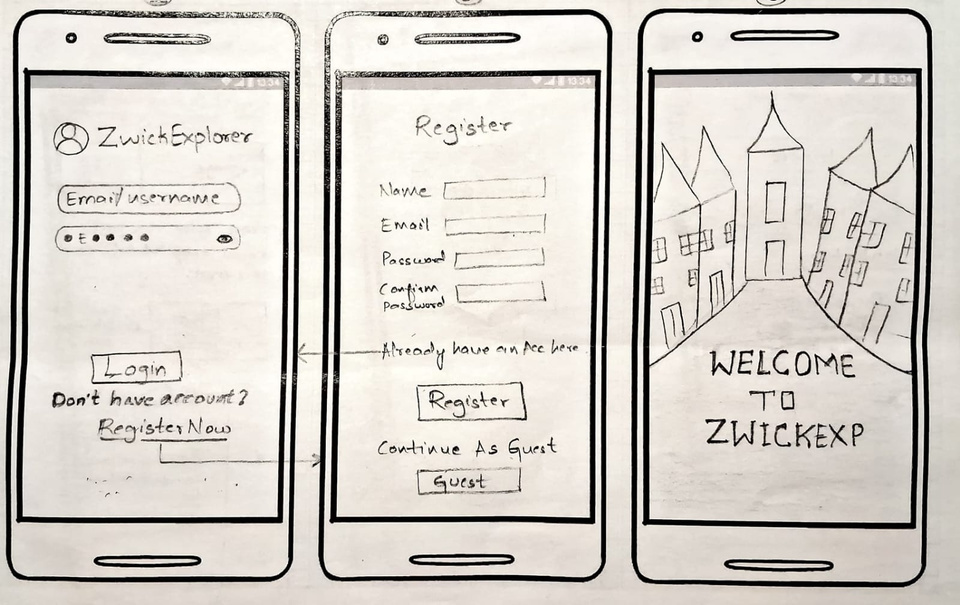 ZwickExplorer
Email/username
Login
Don't have account?
Register Now
Register
Name
Email
Password
Confirm
Password
Already have an Acc here
Register
Continue As Guest
Guest
WELCOME
TO
ZWICKEXP